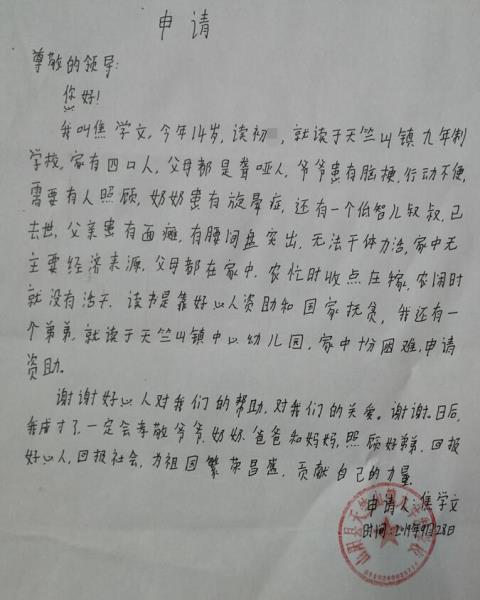 申请
尊敬的领导:
您好!
我叫焦学文,今年14岁,读初,就读于天竺山镇九年制
学校,家有四口人,父母都是聋哑人,爷爷患有脑梗,行动不便,
需要有人照顾,奶奶患有旋晕症,还有一个伯智儿叔叔,已
去世,父亲患有面瘫,有腰间盘突出,无法干体力活,家中无
主要经济来源,父母都在家中.农忙时收点庄稼,农闲时
就没有活干.读书是靠好心人资助和国家扶贫,我还有一
个弟弟,就读于天竺山镇中心幼儿园,家中十份困难,申请
资助。
谢谢好心人对我们的帮助,对我们的关爱。谢谢.日后,
我成才了,一定会孝敬爷爷,奶奶.爸爸和妈妈,照顾好弟弟,回报
好心人,回报社会,为祖国繁荣昌盛,贡献自己的力量.
申请人:焦学文
时间:2019年9月28日
山阳县天竺山镇九年制学校